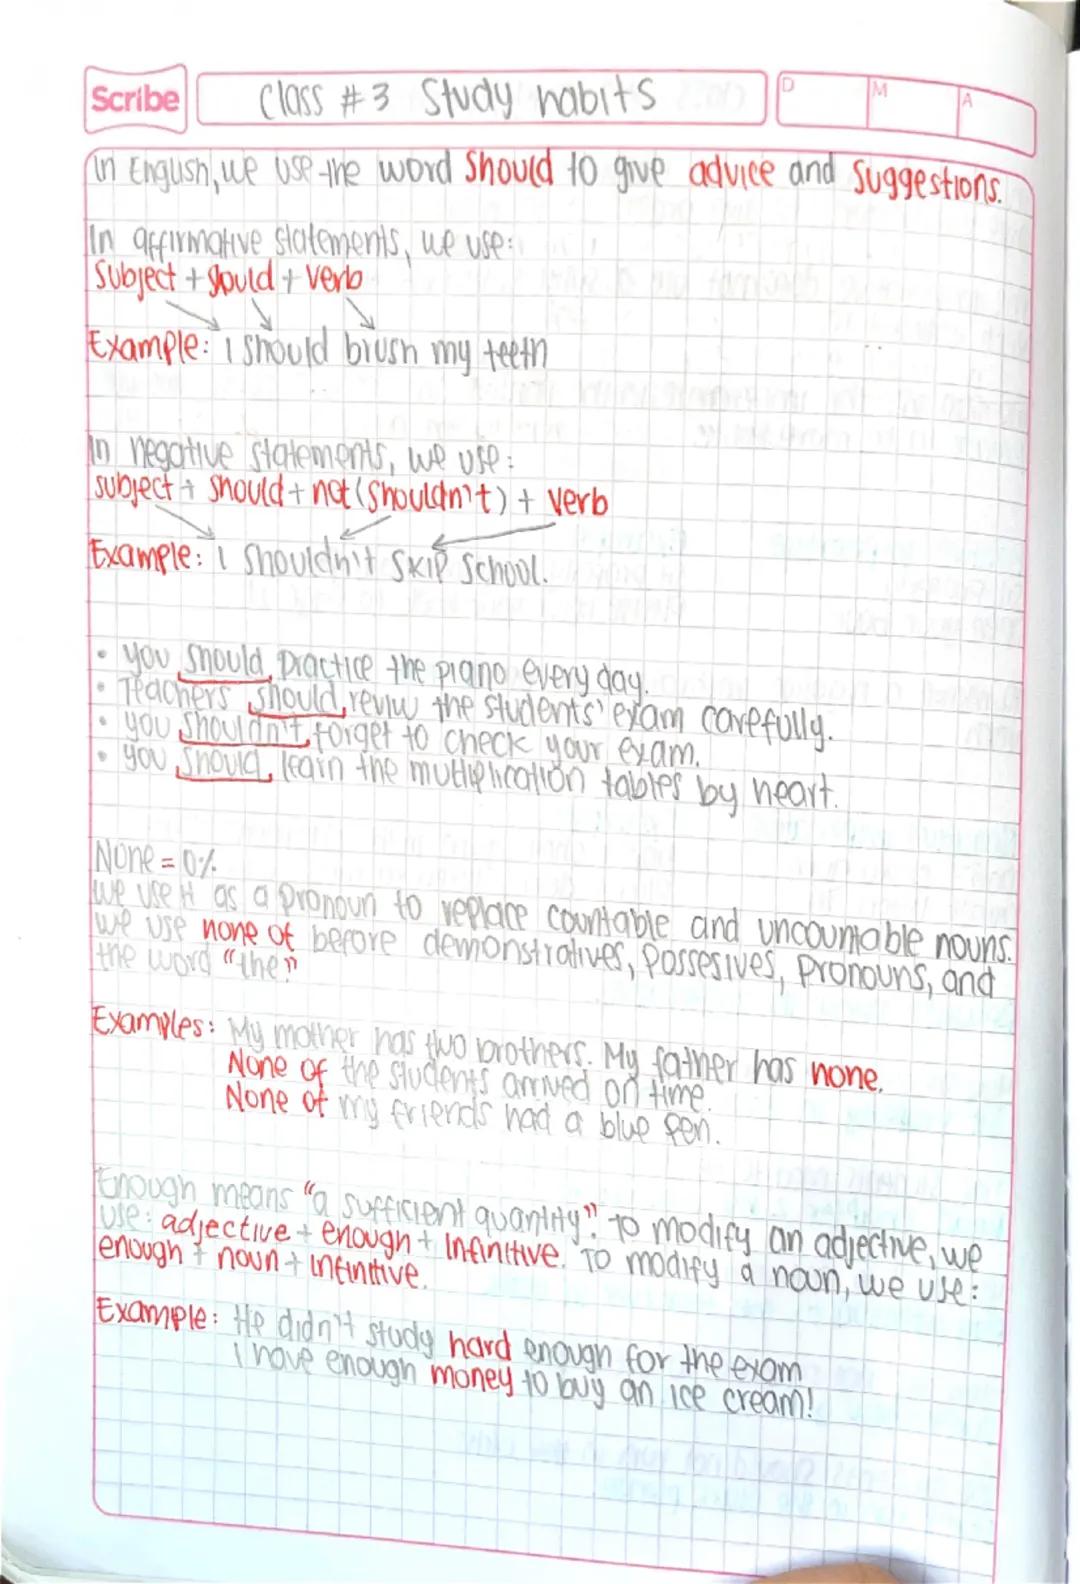 Scribe
Class #3 Study habits
D M A
In English, we use the word Should to give advice and Suggestions.
In affirmative statements, we use:
Subject + sould + verb
Example: I should brush my teeth
In negative statements, we use:
subject + should + not (shouldn't) + verb
Example: I shouldn't skip school.
• you should practice the piano every day.
• Teachers should reviw the students' exam carefully.
• you shouldn't forget to check your exam.
• you should learn the multiplication tables by heart.
None = 0%
we use it as a pronoun to replace countable and uncountable nouns.
we use none of before demonstratives, possesives, pronouns, and
the word "the"
Examples: My mother has two brothers. My father has none.
None of the students arrived on time.
None of my friends had a blue pen.
Enough means "a sufficient quantity". To modify an adjective, we
use: adjective + enough + infinitive. To modify a noun, we use:
enough + noun + infinitive.
Example: He didn't study hard enough for the exam
I have enough money to buy an ice cream!